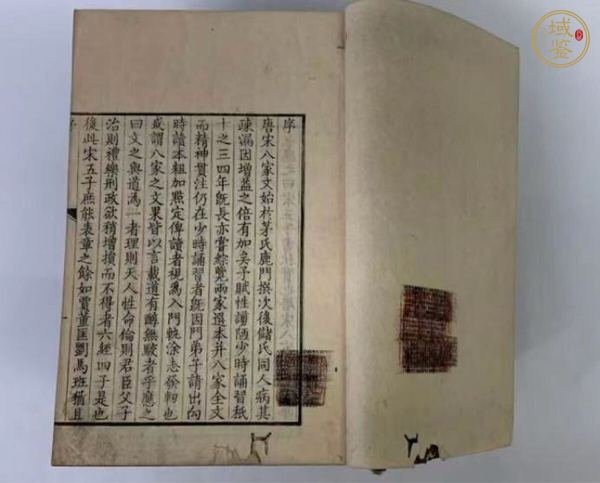 序
唐宋八家文始於茅氏鹿門撰次後儲氏同人病其
疎漏因增益之倍有加矣予賦性謭陋少時誦習秖
十之三四年既長亦嘗綜覽兩家選本并八家全文
而精神貫注仍在少時誦習者既因門弟子請出向
時讀本粗加點定俾讀者視為入門軌涂志發軔也
或謂八家之文果皆以言載道有醇無駁者乎應之
曰文之與道為一者理則天人性命倫則君臣父子
治則禮樂刑政欲稍增損而不得者六經四子是也
後此宋五子庶能表章之餘如賈董匡劉馬班猶且
域鑒